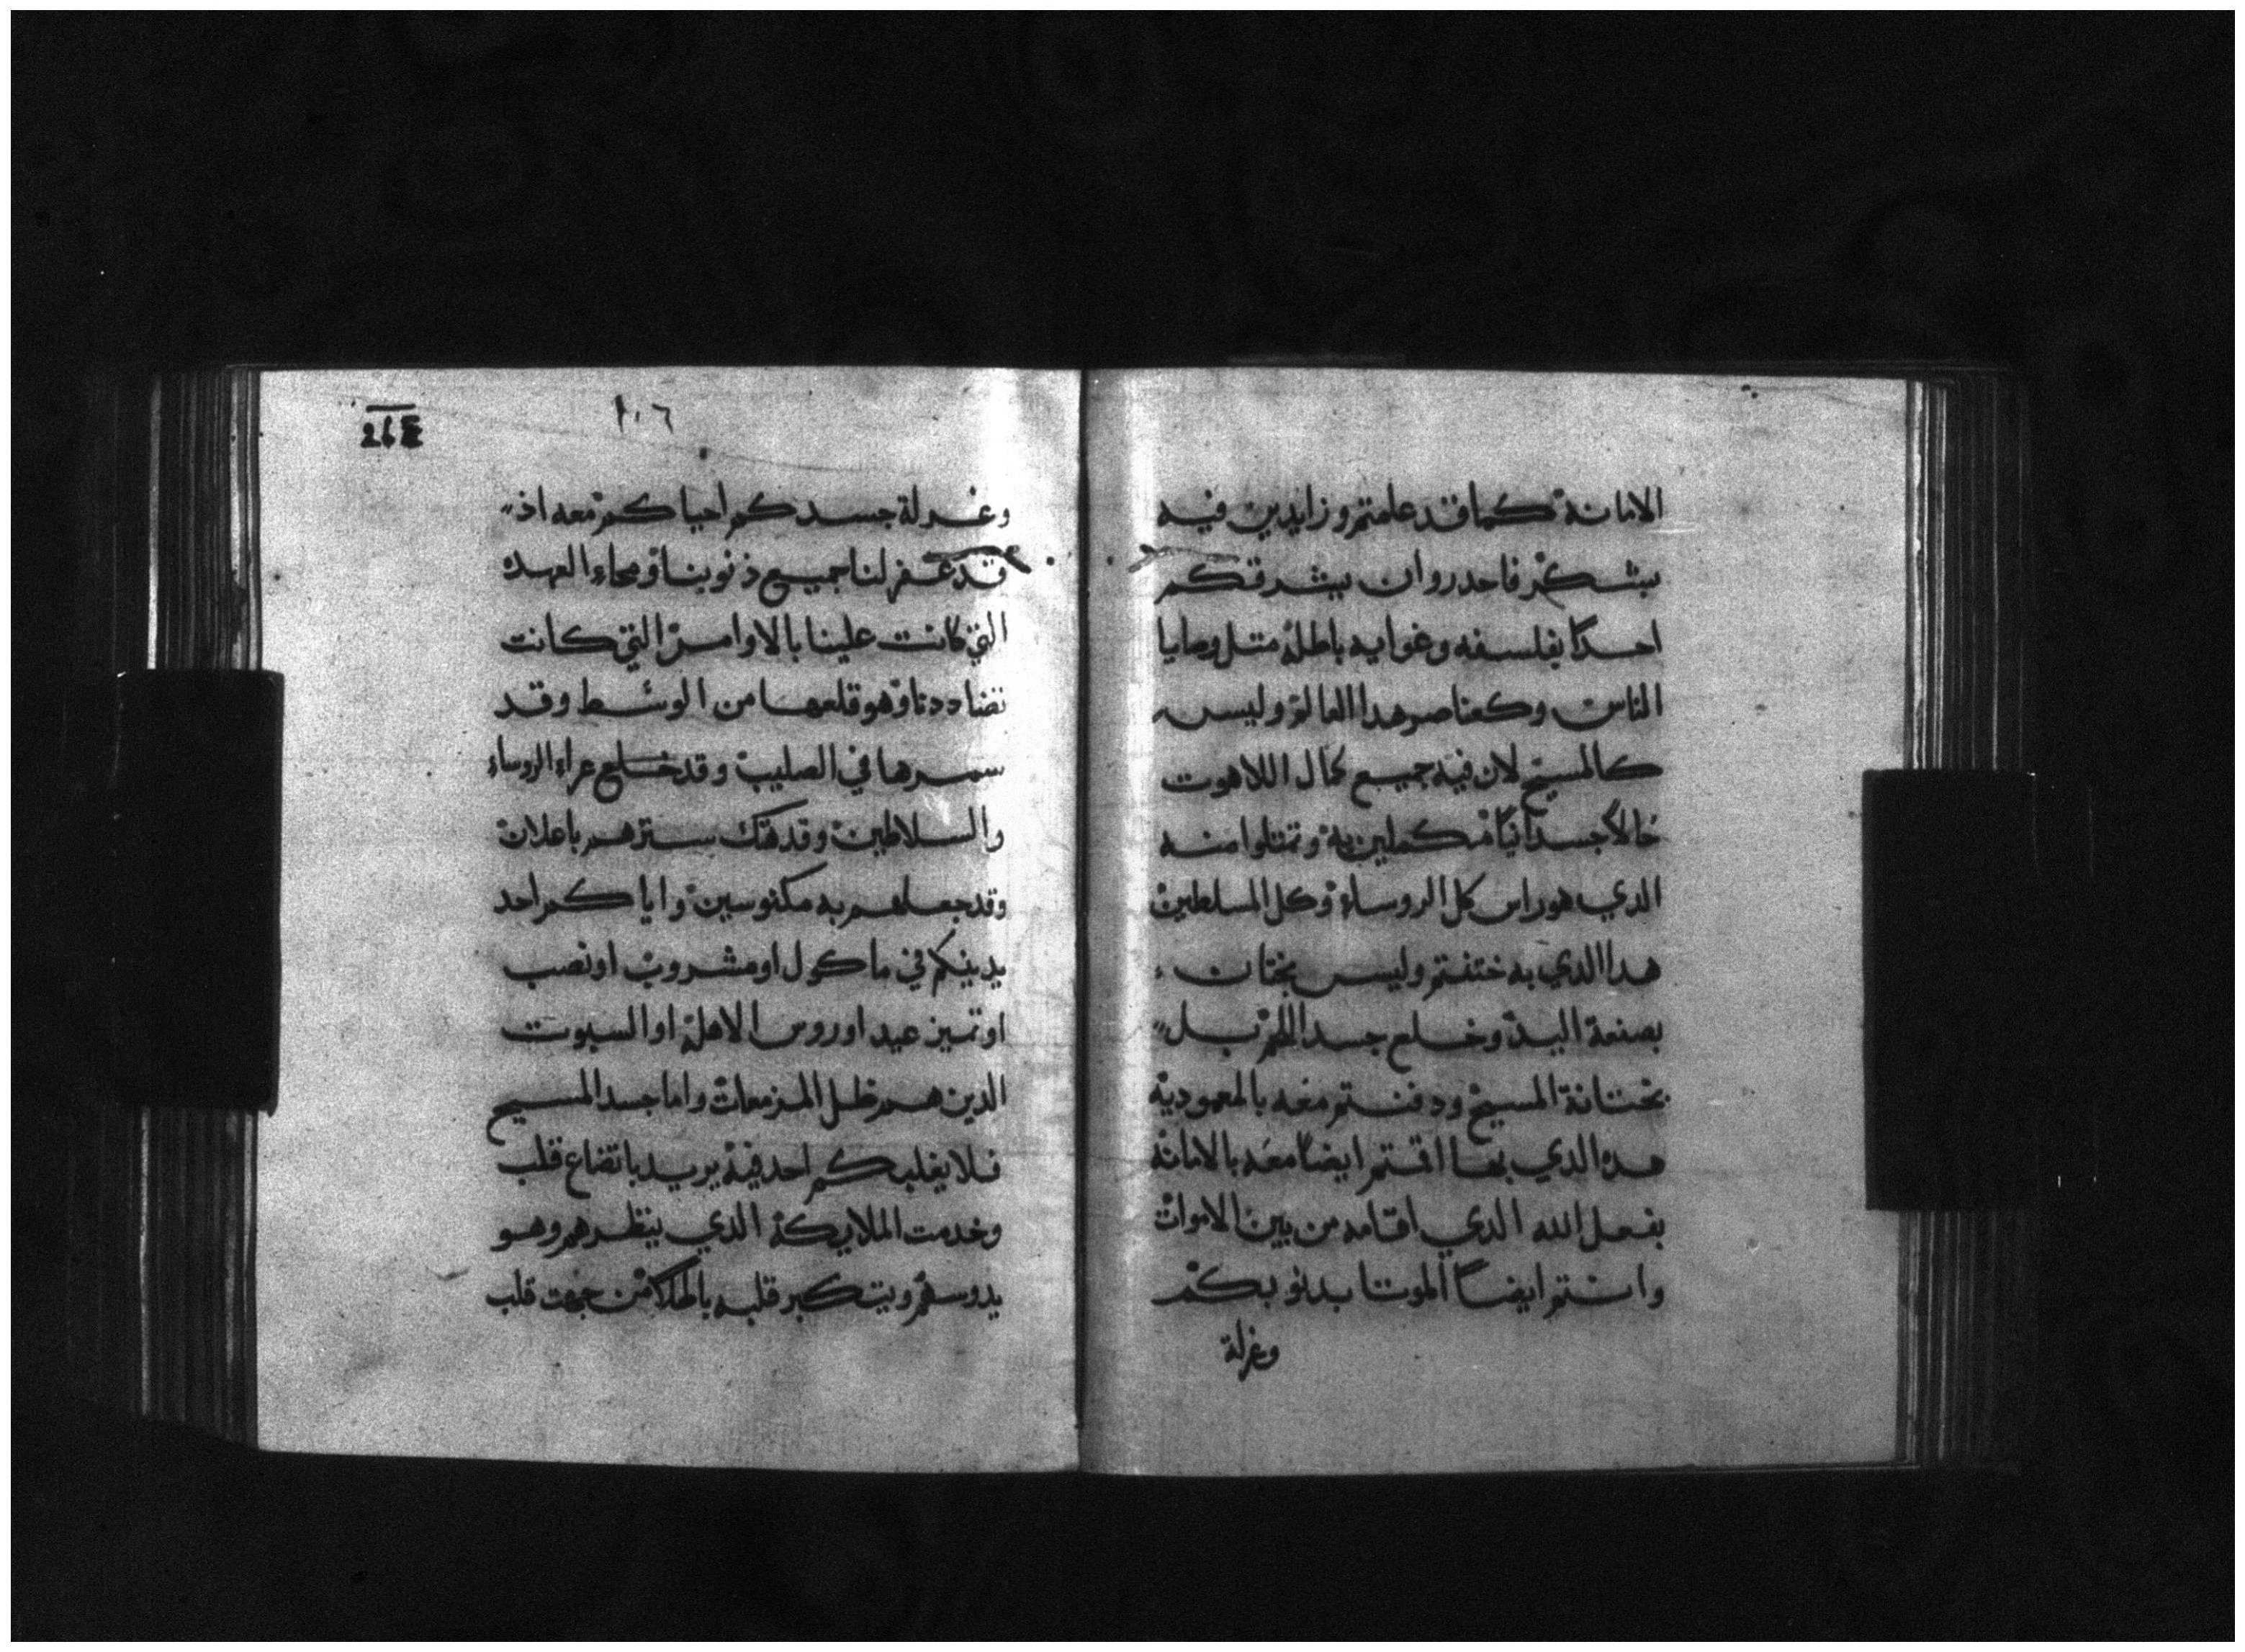 الامانة كما قد علمتم وزايدين فيه
بشكر فاحدروا ان يشرقكم
احدًا بفلسفه وغوايه باطلة متل وصايا
الناس وكعناصر هدا العالم وليس
كالمسيح لان فيه جميع كمال اللاهوت
حالاً جسدانيًا مكملين به وتمتلوا منه
الدي هو راس كل الروساء وكل المسلطين
هدا الدي به ختنتم وليس بختان
بصنعة اليد وخلع جسد اللحم بل
بختانة المسيح ودفنتم معه بالمعمودية
هده الدي بها اقمتم ايضًا معه بالامانة
بفعل الله الدي اقامه من بين الاموات
وانتم ايضًا الموتا بدنوبكم
وغرلة
١٠٦
وغرلة جسدكم احياكم معه اذ
قد غفر لنا جميع ذنوبنا ومحاء العهدة
التي كانت علينا بالاوامر التي كانت
تضاددنا وهو قلعها من الوسط وقد
سمرها في الصليب وقد خلع عراء الروساء
والسلاطين وقد هتك سترهم باعلان
وقد جعلهم به مكنوسين واياكم احد
يدينكم في ماكول او مشروب او نصب
او تميز عيد او روس الاهلة او السبوت
الدين هم ظل المزمعات واما جسد المسيح
فلا يغلبكم احد فيه يريد باتضاع قلب
وخدمت الملايكة الدي ينظرهم وهو
يدوسهم ويتكبر قلبه بالهلاك من جهت قلب